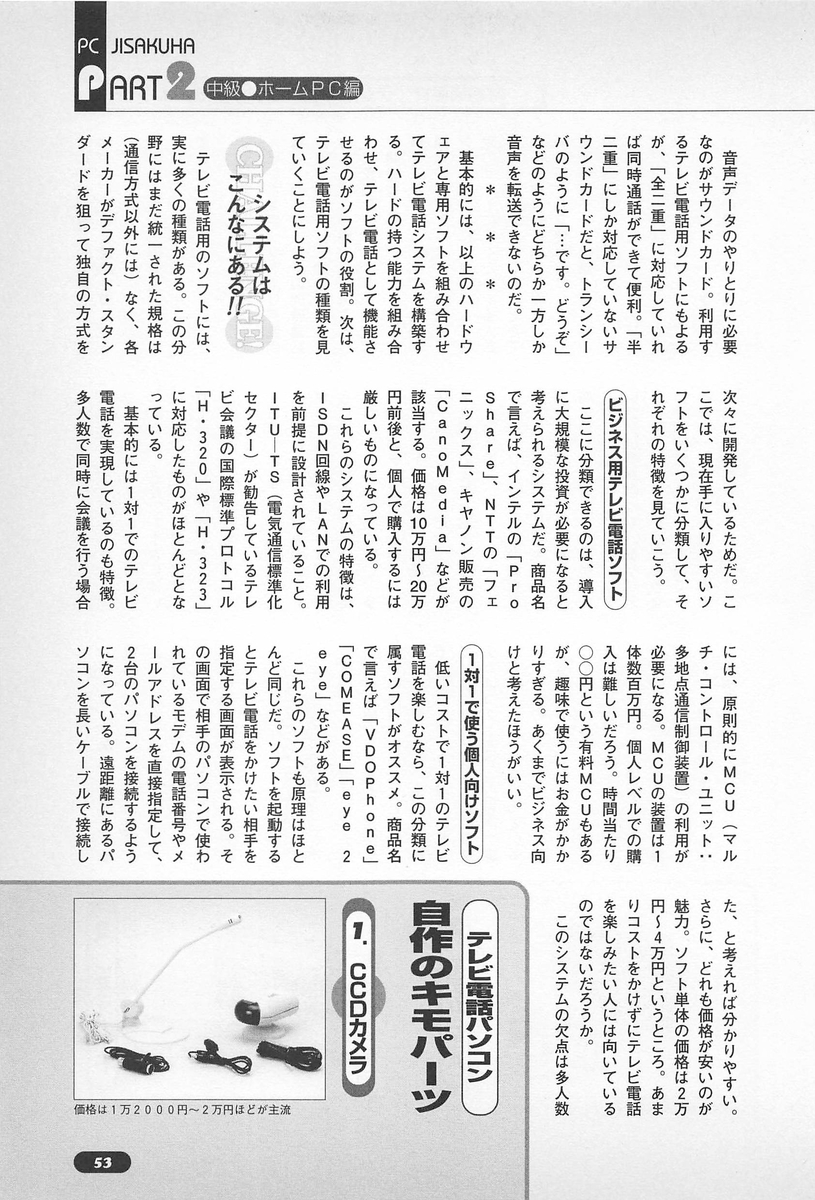 PC JISAKUHA
PART2 中級●ホームPC編
　音声データのやりとりに必要
なのがサウンドカード。利用す
るテレビ電話用ソフトにもよる
が、「全二重」に対応していれ
ば同時通話ができて便利。「半
二重」にしか対応していないサ
ウンドカードだと、トランシー
バのように「…です。どうぞ」
などのようにどちらか一方しか
音声を転送できないのだ。
＊　＊　＊
　基本的には、以上のハードウ
ェアと専用ソフトを組み合わせ
てテレビ電話システムを構築す
る。ハードの持つ能力を組み合
わせ、テレビ電話として機能さ
せるのがソフトの役割。次は、
テレビ電話用ソフトの種類を見
ていくことにしよう。
CHALLENGE!
システムは
こんなにある!!
　テレビ電話用のソフトには、
実に多くの種類がある。この分
野にはまだ統一された規格は
（通信方式以外には）なく、各
メーカーがデファクト・スタン
ダードを狙って独自の方式を
次々に開発しているためだ。こ
こでは、現在手に入りやすいソ
フトをいくつかに分類して、そ
れぞれの特徴を見ていこう。
ビジネス用テレビ電話ソフト
　ここに分類できるのは、導入
に大規模な投資が必要になると
考えられるシステムだ。商品名
で言えば、インテルの「Pro
Share」、NTTの「フェ
ニックス」、キヤノン販売の
「CanoMedia」などが
該当する。価格は10万円〜20万
円前後と、個人で購入するには
厳しいものになっている。
　これらのシステムの特徴は、
ISDN回線やLANでの利用
を前提に設計されていること。
ITU—TS（電気通信標準化
セクター）が勧告しているテレ
ビ会議の国際標準プロトコル
「H・320」や「H・323」
に対応したものがほとんどとな
っている。
　基本的には1対1でのテレビ
電話を実現しているのも特徴。
多人数で同時に会議を行う場合
には、原則的にMCU（マル
チ・コントロール・ユニット：
多地点通信制御装置）の利用が
必要になる。MCUの装置は1
体数百万円。個人レベルでの購
入は難しいだろう。時間当たり
○○円という有料MCUもある
が、趣味で使うにはお金がかか
りすぎる。あくまでビジネス向
けと考えたほうがいい。
1対1で使う個人向けソフト
　低いコストで1対1のテレビ
電話を楽しむなら、この分類に
属すソフトがオススメ。商品名
で言えば「VDOPhone」
「COMEASE」「eye 2
eye」などがある。
　これらのソフトも原理はほと
んど同じだ。ソフトを起動する
とテレビ電話をかけたい相手を
指定する画面が表示される。そ
の画面で相手のパソコンで使わ
れているモデムの電話番号やメ
ールアドレスを直接指定して、
2台のパソコンを接続するよう
になっている。遠距離にあるパ
ソコンを長いケーブルで接続し
た、と考えれば分かりやすい。
さらに、どれも価格が安いのが
魅力。ソフト単体の価格は2万
円〜4万円というところ。あま
りコストをかけずにテレビ電話
を楽しみたい人には向いている
のではないだろうか。
　このシステムの欠点は多人数
テレビ電話パソコン
自作のキモパーツ
1. CCDカメラ
価格は1万2000円〜2万円ほどが主流
53